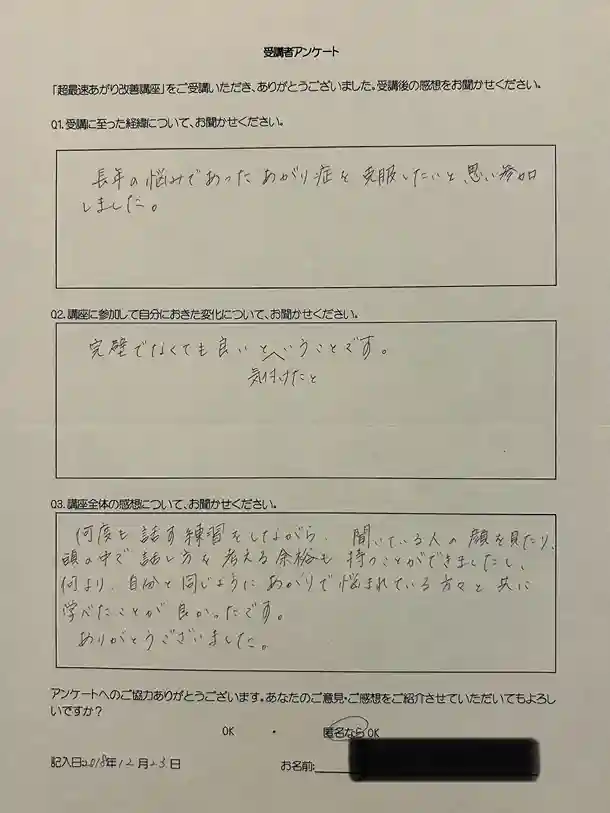 受講者アンケート
「超最速あがり改善講座」をご受講いただき、ありがとうございました。受講後の感想をお聞かせください。
Q1.受講に至った経緯について、お聞かせください。
長年の悩みであったあがり症を克服したいと思い参加
しました。
Q2.講座に参加して自分におきた変化について、お聞かせください。
完璧でなくても良いということです。
気付けたと
Q3.講座全体の感想について、お聞かせください。
何度も話す練習をしながら、聞いている人の顔を見たり、
頭の中で話し方を考える余裕も持つことができましたし、
何より、自分と同じようにあがりで悩まれている方々と共に
学べたことが良かったです。
ありがとうございました。
アンケートへのご協力ありがとうございます。あなたのご意見・ご感想をご紹介させていただいてもよろし
いですか？
OK ・ 匿名ならOK
記入日2018年12月23日 お名前: